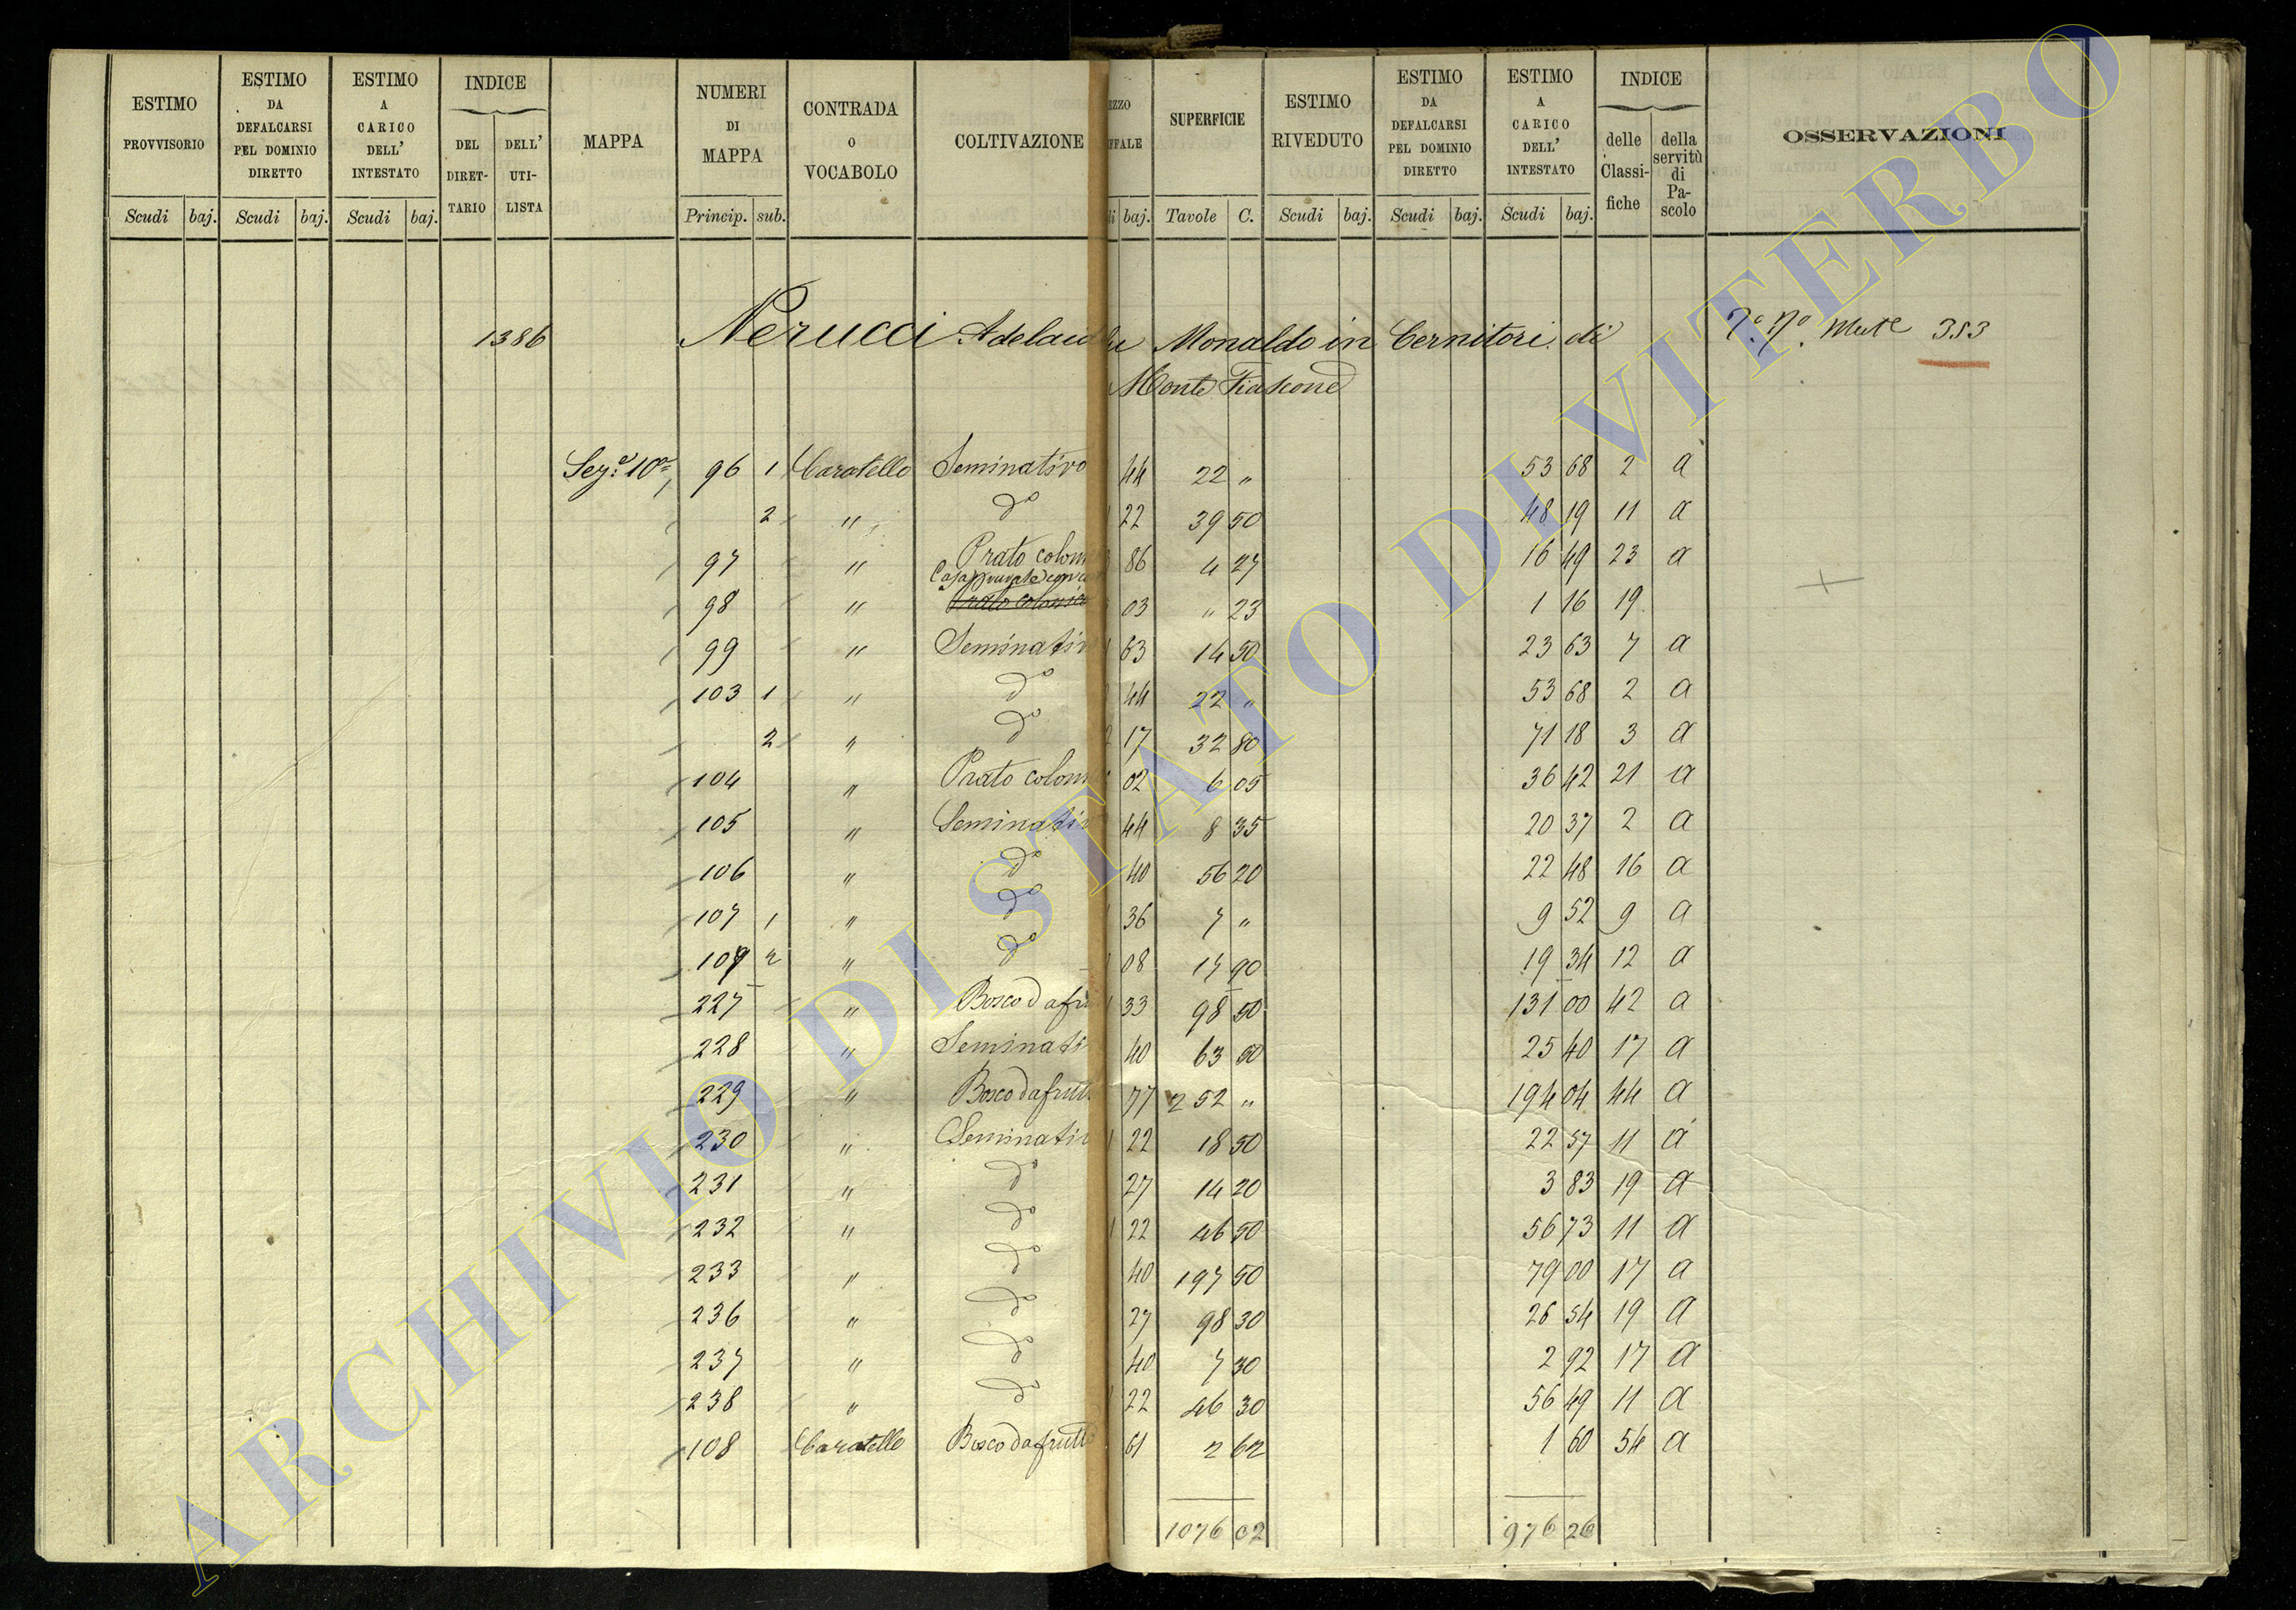 ESTIMO PROVVISORIO Scudi baj. ESTIMO DA DEFALCARSI PEL DOMINIO DIRETTO Scudi baj. ESTIMO A CARICO DELL' INTESTATO Scudi baj. INDICE DEL DIRET-TARIO DELL' UTI-LISTA MAPPA NUMERI DI MAPPA Princip. sub. CONTRADA o VOCABOLO COLTIVAZIONE EZZO FFALE di baj. SUPERFICIE Tavole C. ESTIMO RIVEDUTO Scudi baj. ESTIMO DA DEFALCARSI PEL DOMINIO DIRETTO Scudi baj. ESTIMO A CARICO DELL' INTESTATO Scudi baj. INDICE delle Classi-fiche della servitù di Pa-scolo OSSERVAZIONI
1386 Nerucci Adelaide Monaldo in Cernitori di 353
Monte Fiascone
Sez.e 10a 96 1 Caratello Seminativo 44 22 " 53 68 2 a
2 " do 22 39 50 48 19 11 a
97 " Prato colom 86 4 27 16 49 23 a
98 " Prato colonico 03 " 23 1 16 19
99 " Seminativ 63 14 50 23 63 7 a
103 1 " do 44 22 " 53 68 2 a
2 " do 17 32 80 71 18 3 a
104 " Prato colom 02 6 05 36 42 21 a
105 " Seminativ 44 8 35 20 37 2 a
106 " do 40 56 20 22 48 16 a
107 1 " do 36 7 " 9 52 9 a
2 " do 08 17 90 19 34 12 a
227 " Bosco da fru 33 98 50 131 00 42 a
228 " Seminati 40 63 50 25 40 17 a
229 " Bosco da frutt 77 252 " 194 04 44 a
230 " Seminativ 22 18 50 22 57 11 a
231 " do 27 14 20 3 83 19 a
232 " do 22 46 50 56 73 11 a
233 " do 40 197 50 79 00 17 a
236 " do 27 98 30 26 54 19 a
237 " do 40 7 30 2 92 17 a
238 " do 22 46 30 56 49 11 a
108 Caratello Bosco da frutt 61 2 62 1 60 54 a
1076 02 976 26
ARCHIVIO DI STATO DI VITERBO